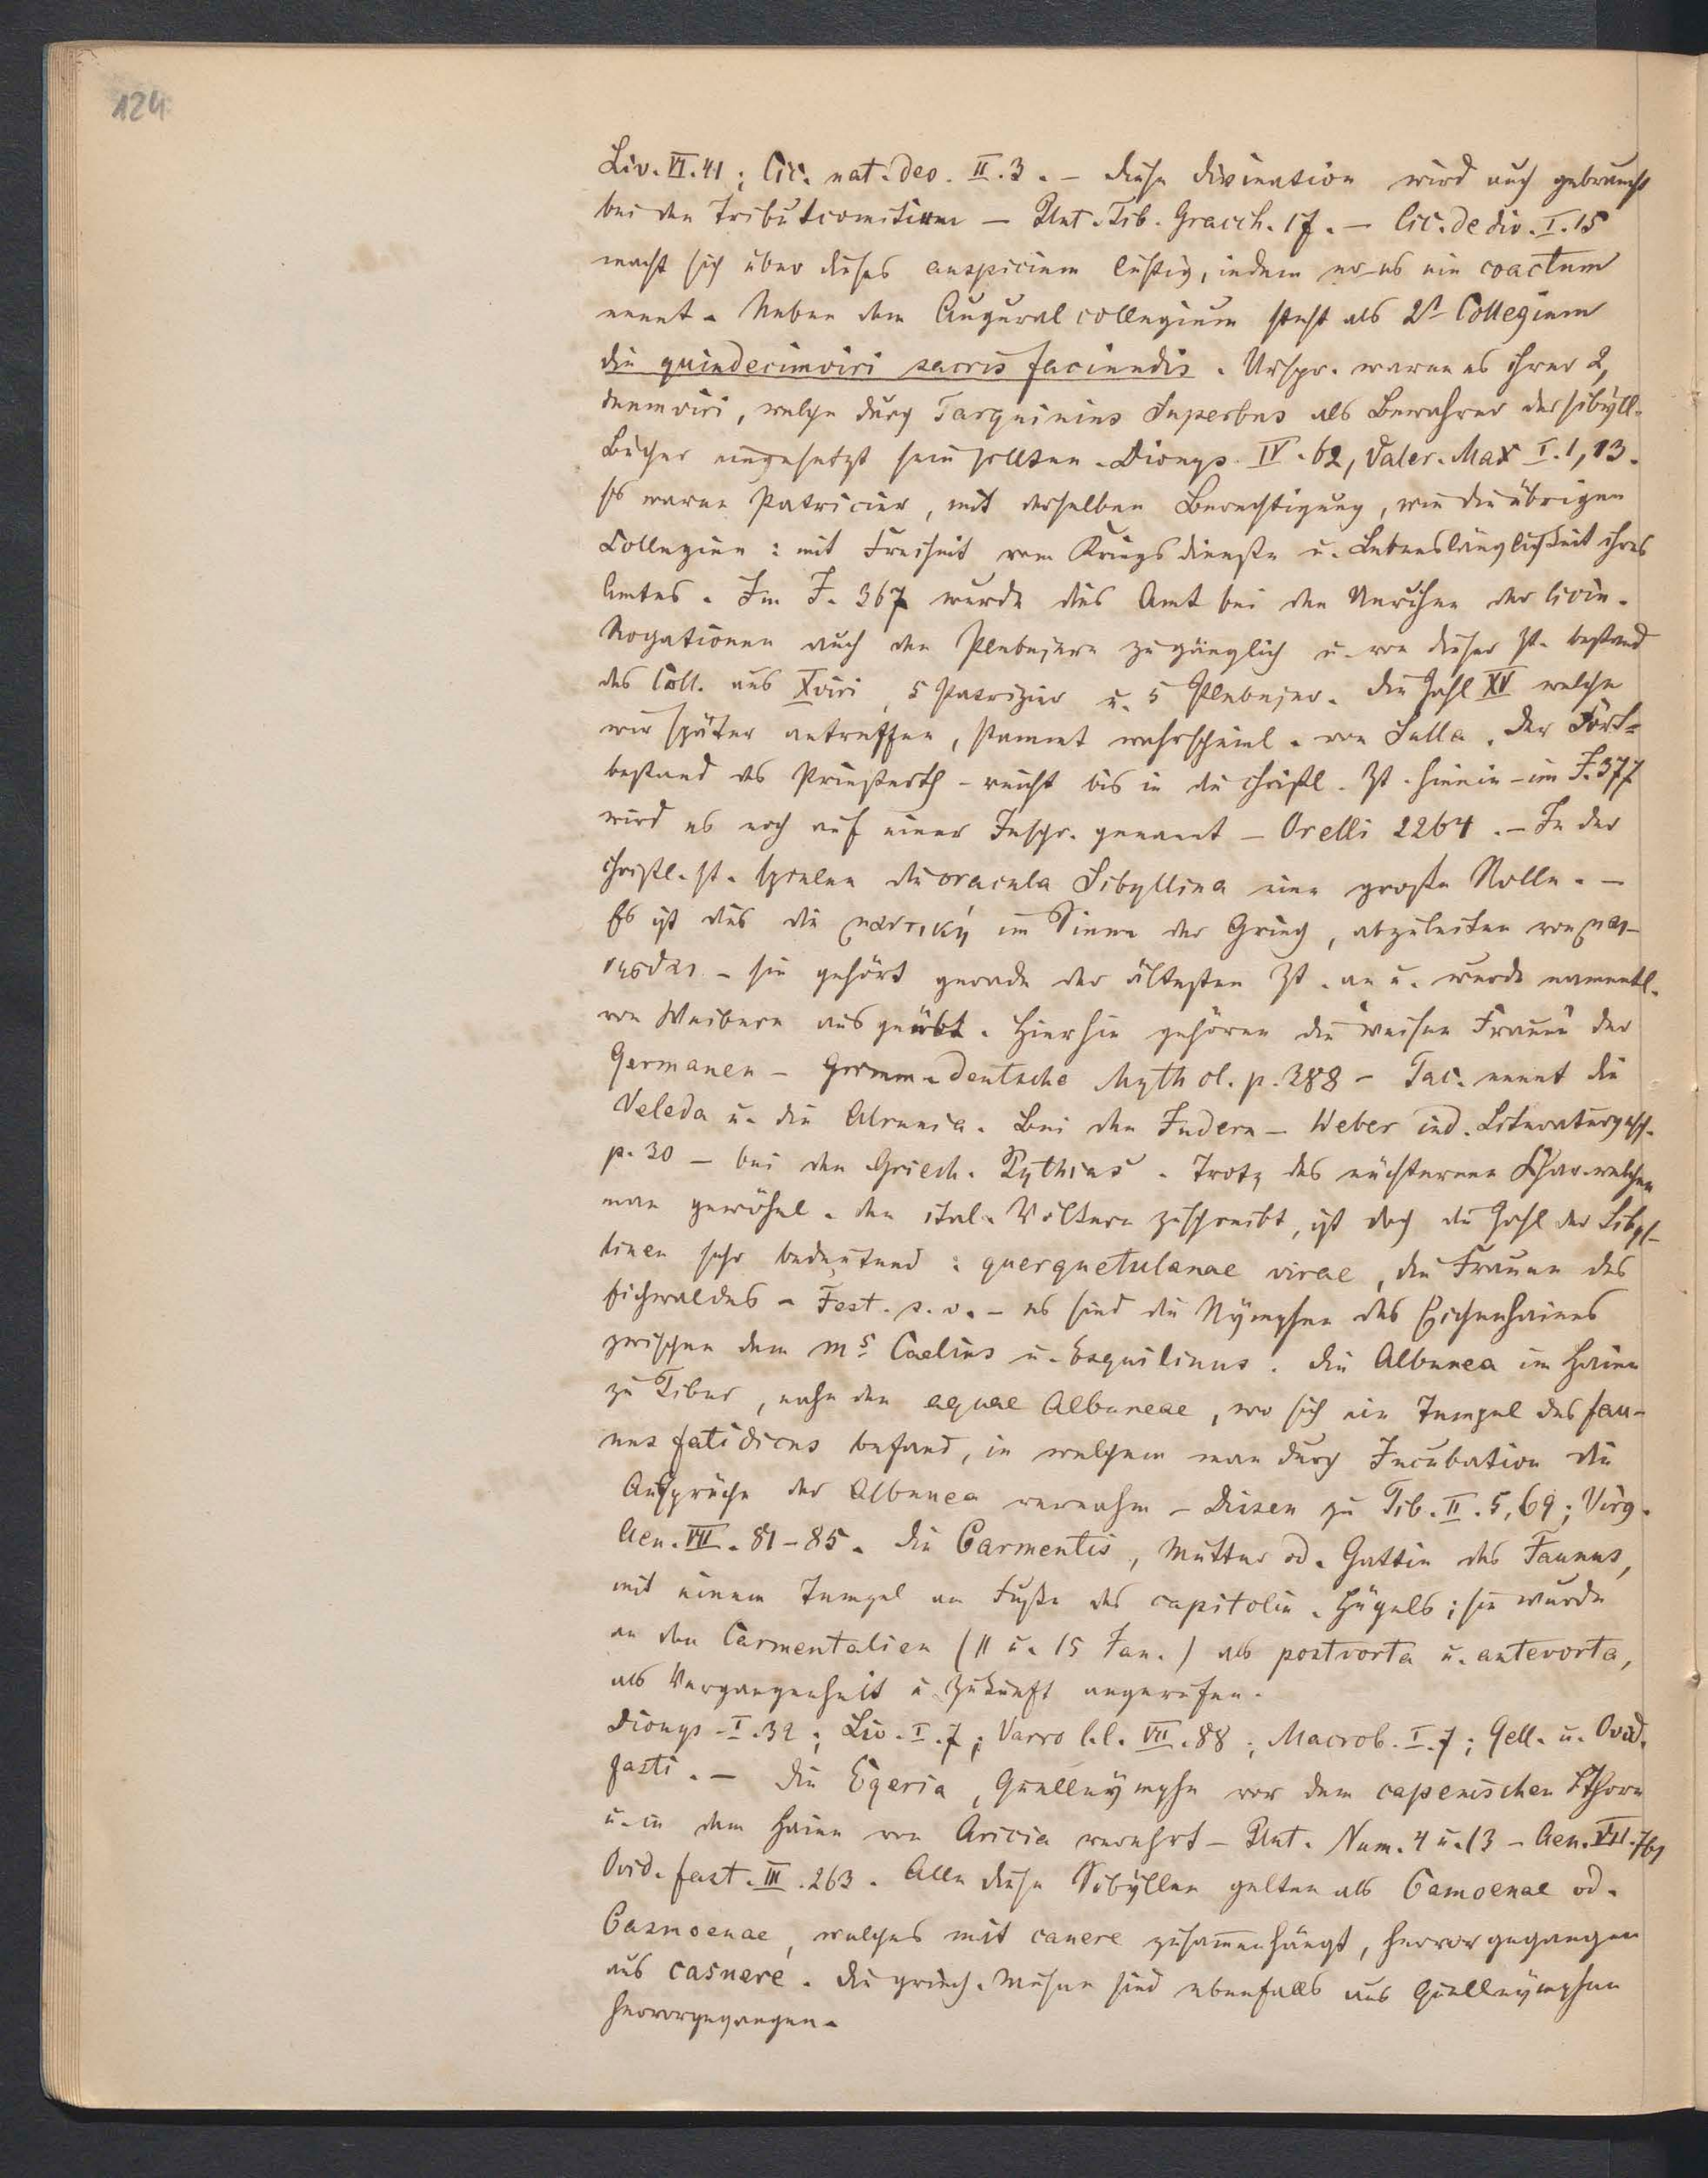 124
Liv. VI. 41; Cic. nat. deo. II. 3. – diese Divination wird auch gebraucht
bei den Tributcomitien – Plut. Tib. Gracch. 17. – Cic. de div. I. 15
macht sich über dieses auspicium lustig, indem er es ein coactum
nennt. Neben dem Auguralcollegium steht als 2t Collegium
die quindecimviri sacris faciundis. Urspr. waren es ihrer 2,
duumviri, welche durch Tarquinius Superbus als Bewahrer der sibyll.
Bücher eingesetzt sein sollten. Dionys. IV. 62, Valer. Max I. 1, 13.
Es waren Patricier, mit derselben Berechtigung, wie die übrigen
Collegien: mit Freiheit vom Kriegsdienste u. Lebenslänglichkeit ihres
Amtes. Im J. 367 wurde dies Amt bei den Unruhen der licin.
Rogationen auch den Plebejern zugänglich u. von dieser Zt. bestand
das Coll. aus Xviri, 5 Patrizier u. 5 Plebejer. Die Zahl XV welche
wir später antreffen, stammt wahrscheinl. von Sulla. Der Fort-
bestand des Priesterth. reicht bis in die christl. Zt. hinein – im J. 377
wird es noch auf einer Inschr. genannt – Orelli 2264. – In der
christl. Zt. spielen die oracula Sibyllina eine große Rolle. –
Es ist dies die μαντική im Sinne der Griech, abzuleiten von μαί-
νεσθαι – sie gehört gerade der ältesten Zt. an u. wurde namentl.
von Weibern ausgeübt. Hierhin gehören die "weisen Frauen" der
Germanen – Grimm deutsche Mythol. p. 388 – Tac. nennt die
Veleda u. die Alrunia. Bei den Indern – Weber ind. Literaturgesch.
p. 30 – bei den Griech. Pythias. Trotz des nüchternen Char. welchen
man gewöhnl. den ital. Völkern zuschreibt, ist doch die Zahl der Sibyl-
linen sehr bedeutend: querquetulanae virae, die Frauen des
Eichwaldes – Fest. s. v. – es sind die Nymphen des Eichenhaines
zwischen dem ms Caelius u. Esquilinus. Die Albunea im Haine
zu Tibur, nahe den aquae Albuneae, wo sich ein Tempel des Fau-
nus fatidicus befand, in welchem man durch Incubation die
Aussprüche der Albunea vernahm – Dissen zu Tib. II. 5, 69; Virg.
Aen. VII. 81–85. Die Carmentis, Mutter od. Gattin des Faunus,
mit einem Tempel am Fuße des capitolin. Hügels; sie wurde
an den Carmentalien (11 u. 15 Jan.) als postvorta u. antevorta,
als Vergangenheit u. Zukunft angerufen.
Dionys. I. 32; Liv. I. 7; Varro l.l. VII. 88; Macrob. I. 7; Gell. u. Ovid.
fasti. – Die Egeria, Quellnymphe vor dem capenischen Thore
u. in dem Haine von Aricia verehrt – Plut. Num. 4 u. 13 – Aen. VII. 761
Ovid. fast. III. 263. Alle diese Sibyllen gelten als Camoenae od.
Casmoenae, welches mit canere zusammenhängt, hervorgegangen
aus casnere. Die griech. Musen sind ebenfalls aus Quellnymphen
hervorgegangen.